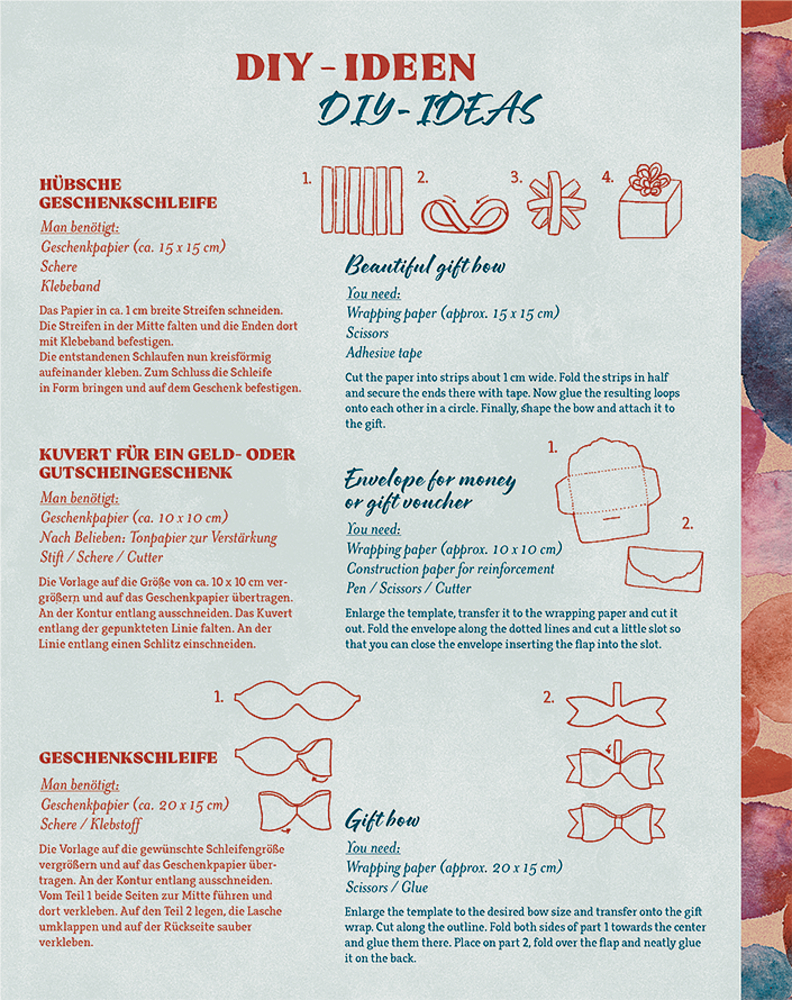 DIY – IDEEN
DIY- IDEAS
HÜBSCHE
GESCHENKSCHLEIFE
Man benötigt:
Geschenkpapier (ca. 15 x 15 cm)
Schere
Klebeband
Das Papier in ca. 1 cm breite Streifen schneiden.
Die Streifen in der Mitte falten und die Enden dort
mit Klebeband befestigen.
Die entstandenen Schlaufen nun kreisförmig
aufeinander kleben. Zum Schluss die Schleife
in Form bringen und auf dem Geschenk befestigen.
1.
2.
3.
4.
Beautiful gift bow
You need:
Wrapping paper (approx. 15 x 15 cm)
Scissors
Adhesive tape
Cut the paper into strips about 1 cm wide. Fold the strips in half
and secure the ends there with tape. Now glue the resulting loops
onto each other in a circle. Finally, shape the bow and attach it to
the gift.
KUVERT FÜR EIN GELD- ODER
GUTSCHEINGESCHENK
Man benötigt:
Geschenkpapier (ca. 10 x 10 cm)
Nach Belieben: Tonpapier zur Verstärkung
Stift / Schere / Cutter
Die Vorlage auf die Größe von ca. 10 x 10 cm ver-
größern und auf das Geschenkpapier übertragen.
An der Kontur entlang ausschneiden. Das Kuvert
entlang der gepunkteten Linie falten. An der
Linie entlang einen Schlitz einschneiden.
1.
2.
Envelope for money
or gift voucher
You need:
Wrapping paper (approx. 10 x 10 cm)
Construction paper for reinforcement
Pen / Scissors / Cutter
Enlarge the template, transfer it to the wrapping paper and cut it
out. Fold the envelope along the dotted lines and cut a little slot so
that you can close the envelope inserting the flap into the slot.
1.
2.
GESCHENKSCHLEIFE
Man benötigt:
Geschenkpapier (ca. 20 x 15 cm)
Schere / Klebstoff
Die Vorlage auf die gewünschte Schleifengröße
vergrößern und auf das Geschenkpapier über-
tragen. An der Kontur entlang ausschneiden.
Vom Teil 1 beide Seiten zur Mitte führen und
dort verkleben. Auf den Teil 2 legen, die Lasche
umklappen und auf der Rückseite sauber
verkleben.
Gift bow
You need:
Wrapping paper (approx. 20 x 15 cm)
Scissors / Glue
Enlarge the template to the desired bow size and transfer onto the gift
wrap. Cut along the outline. Fold both sides of part 1 towards the center
and glue them there. Place on part 2, fold over the flap and neatly glue
it on the back.